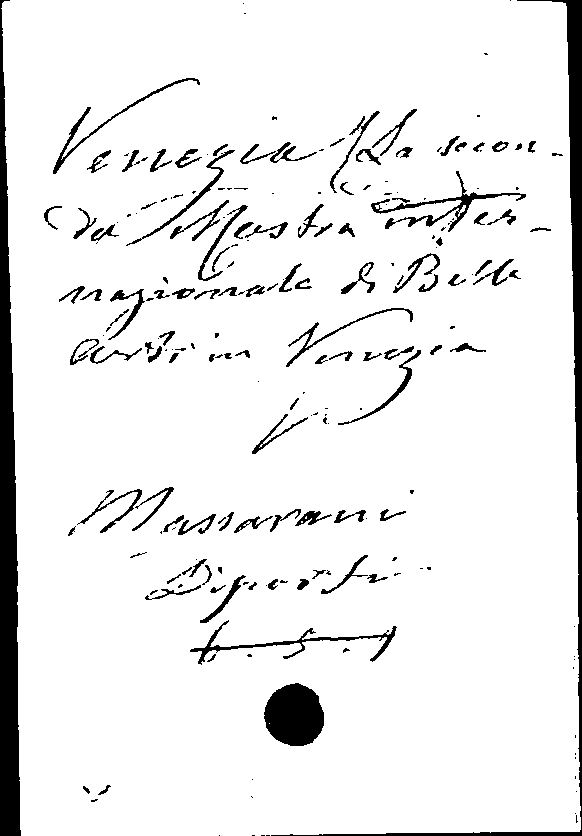 Venezia (La secon-
da Mostra inter-
nazionale di Belle
Arti in Venezia
V.
Massarani
Diporti
6.5.9